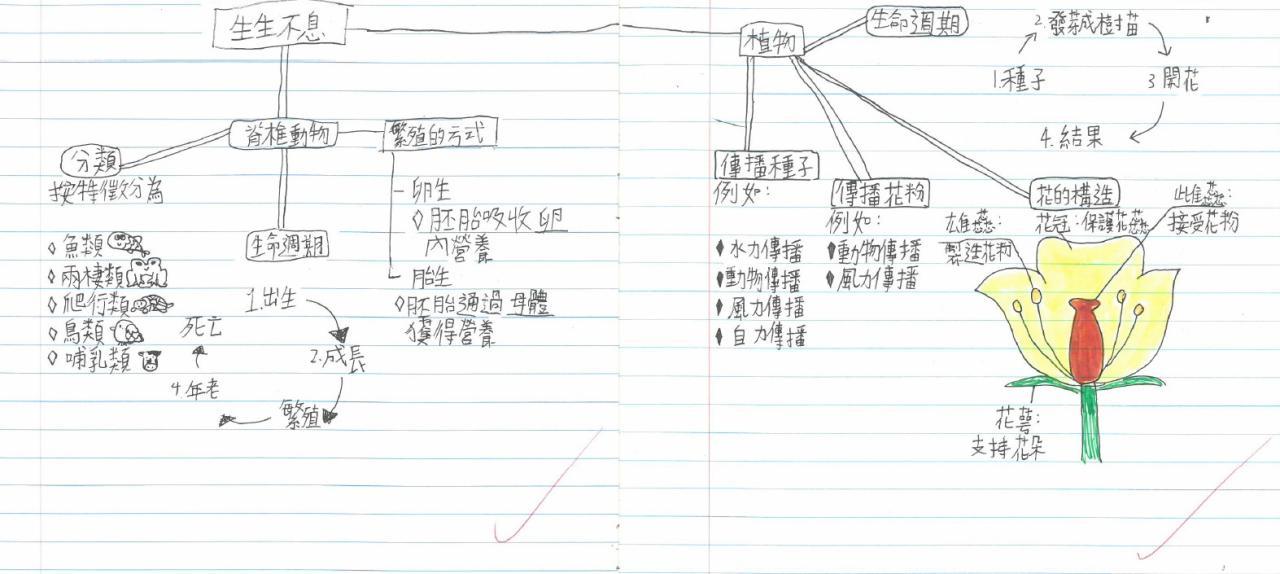 生生不息
脊椎動物
分類
按特徵分為
魚類
兩棲類
爬行類
鳥類
哺乳類
生命週期
1.出生
2.成長
繁殖
4年老
死亡
繁殖的方式
卵生
胚胎吸收卵
內營養
胎生
胚胎通過母體
獲得營養
植物
生命週期
1.種子
2.發芽成樹苗
3開花
4.結果
傳播種子
例如：
水力傳播
動物傳播
風力傳播
自力傳播
傳播花粉
例如：
動物傳播
風力傳播
花的構造
雄蕊：
製造花粉
花冠：保護花蕊
雌蕊：
接受花粉
花萼：
支持花朵